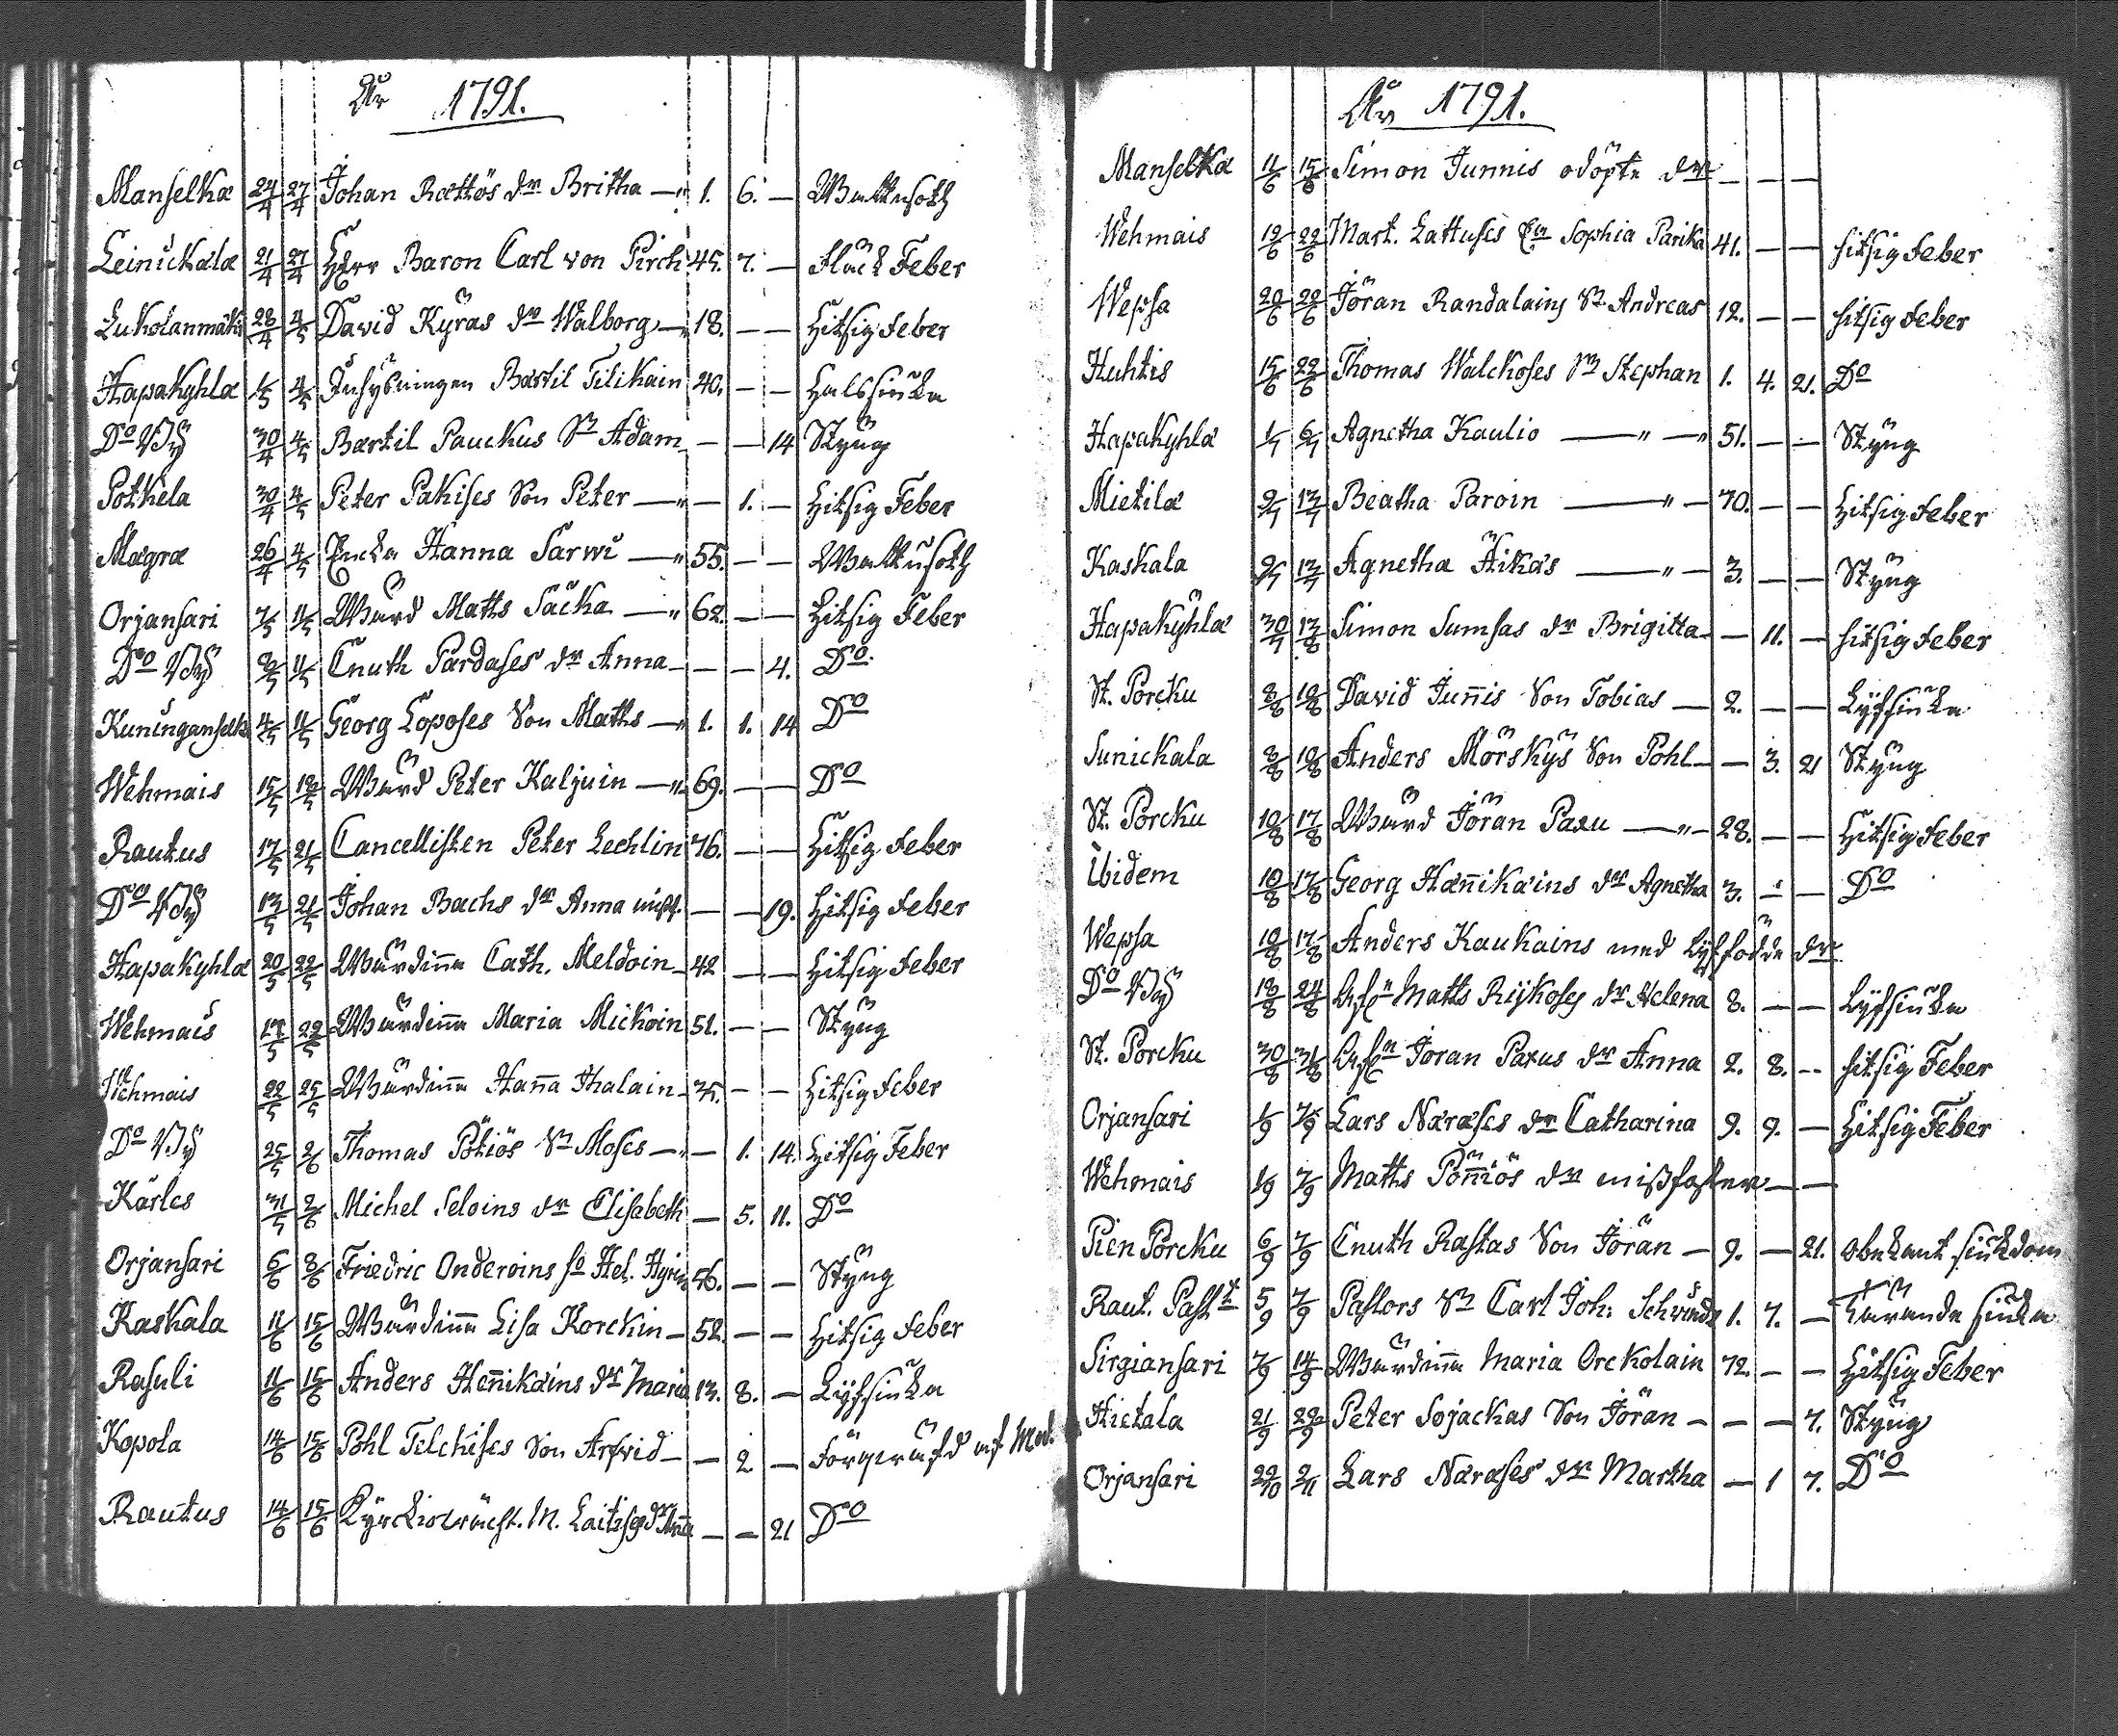 År 1791.
Manselkæ 24/4 27/4 Johan Rættös dr Britha —" 1. 6. — Wattusoth
Leinickalæ 21/4 27/4 Herr Baron Carl von Pirch 45. 7. — Fläck Feber
Lukolanmäki 28/4 4/5 David Kyräs dr Walborg —" 18. — — Hitsig Feber
Hapakyhlæ 1/5 4/5 Inhysningen Bertil Tilikain 40. — — Halssiuka
Do By 30/4 4/5 Bertil Pauckus Sn Adam — — 14 Styng
Potkela 30/4 4/5 Peter Pakises Son Peter —" — 1. — Hitsig Feber
Mægræ 26/4 4/5 Enckan Hanna Sarwi —" 55. — — Wattusoth
Orjansari 7/5 11/5 Wärd Matts Säcka —" 62. — — Hitsig Feber
Do By 9/5 11/5 Cnuth Pardases dr Anna — — — 4. Do
Kuninganselkæ 4/5 11/5 Georg Loposes Son Maths —" 1. 1. 14 Do
Wehmais 15/5 18/5 Wärd Peter Kaljuin —" 69. — — Do
Rautus 17/5 21/5 Cancellisten Peter Lechlin 76. — — Hitsig Feber
Do By 13/5 21/5 Johan Bachs dr Anna — — 19. Hitsig Feber
Hapakyhlæ 20/5 22/5 Wärdinn Cath. Meldoin — 42 — — Hitsig Feber
Wehmais 17/5 22/5 Wärdinn Maria Mickoin 51. — — Styng
Wehmais 22/5 25/5 Wärdinn Hanna Ihalain — 35. — — Hitsig Feber
Do By 25/5 2/6 Thomas Pötiös Sn Moses —" — 1. 14. Hitsig Feber
Kärles 31/5 2/6 Michel Seloins dr Elisabeth — 5. 11. Do
Orjansari 6/6 8/6 Friedric Onderoins Hel. 56. — — Styng
Kaskala 11/6 15/6 Wärdinn Lisa Korckin — 52. — — Hitsig Feber
Rasuli 11/6 15/6 Anders Hennikäins dr Maria 13. 8. — Lyfsiuka
Kopola 14/6 15/6 Pohl Telckises Son Arfvid — — 2 — Förqväfd af Mod.
Rautus 14/6 15/6 M. — — 21 Do
År 1791.
Manselkæ 11/6 15/6 Simon Junnis odöpte dr — — —
Wehmais 19/6 22/6 Mart. Lattuses Sophia Parikæ 41. — — Hitsig Feber
Wepsa 20/6 22/6 Jöran Randalains Sn Andreas 12. — — Hitsig Feber
Huhtis 15/6 22/6 Thomas Walckoses Sn Stephan 1. 4. 21. Do
Hapakyhlæ 1/7 6/7 Agnetha Kaulio —" —" 51. — — Styng
Mietilæ 9/7 13/7 Beatha Paroin —" — 70. — — Hitsig Feber
Kaskala 9/7 13/7 Agnetha Äikäs —" — 3. — — Styng
Hapakyhlæ 30/7 13/8 Simon Sumsas dr Brigitta — — 11. — Hitsig Feber
St. Porcku 8/8 10/8 David Junnis Son Tobias — 2. — — Lyfsiuka
Sunickala 8/8 10/8 Anders Mörskys Son Pohl — — 3. 21 Styng
St. Porcku 10/8 17/8 Wärd Jöran Paxu —" — 28. — — Hitsig Feber
Ibidem 10/8 17/8 Georg Hännikäins dr Agnetha 3. — — Do
Wepsa 10/8 17/8 Anders Kaukains med Lyf födde dr
Do By 18/8 24/8 Matts Rijkoses dr Helena 8. — — Lyfsiuka
St. Porcku 30/8 31/8 Jöran Paxus dr Anna 2. 8. — Hitsig Feber
Orjansari 1/9 7/9 Lars Næræses dr Catharina 9. 9. — Hitsig Feber
Wehmais 1/9 7/9 Maths Pönniös dr mißfaster — —
Pien Porcku 6/9 7/9 Cnuth Rastas Son Jöran — 9. — 21. obekant siukdom
Raut. Past. 5/9 7/9 Pastors Sn Carl Joh: Schwindt 1. 7. — Tärande siuka
Sirgiansari 7/9 14/9 Wärdinn Maria Orckolain 72. — — Hitsig Feber
Hietala 21/9 29/9 Peter Sojackas Son Jöran — — — 7. Styng
Orjansari 29/10 2/11 Lars Næræses dr Martha — 1 7. Do